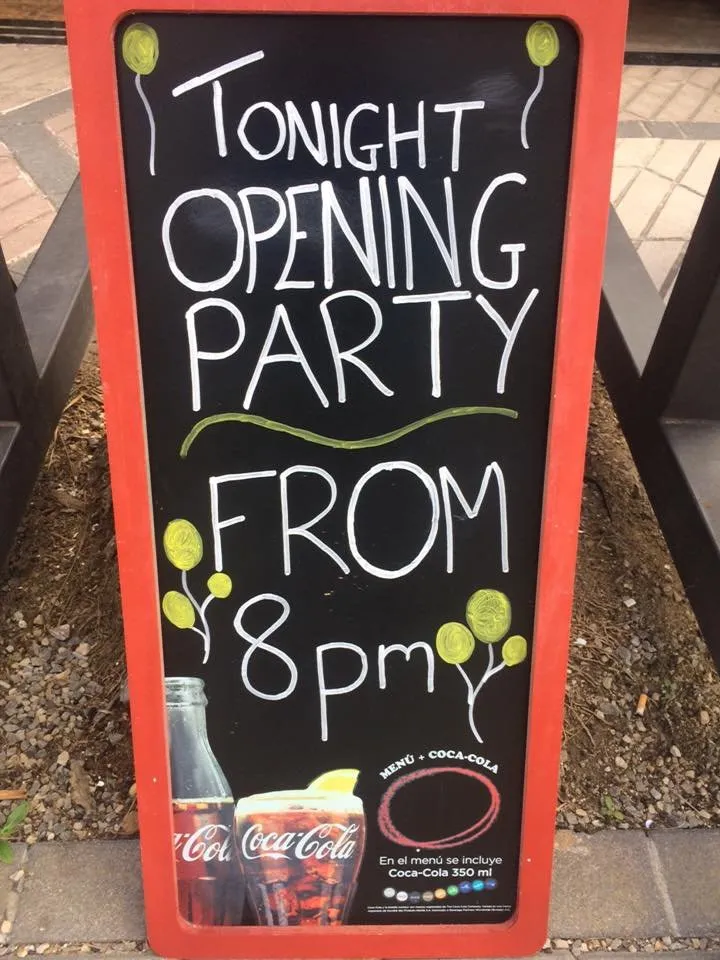 TONIGHT
OPENING
PARTY
FROM
8pm
MENÚ + COCA-COLA
Coca-Cola
En el menú se incluye
Coca-Cola 350 ml